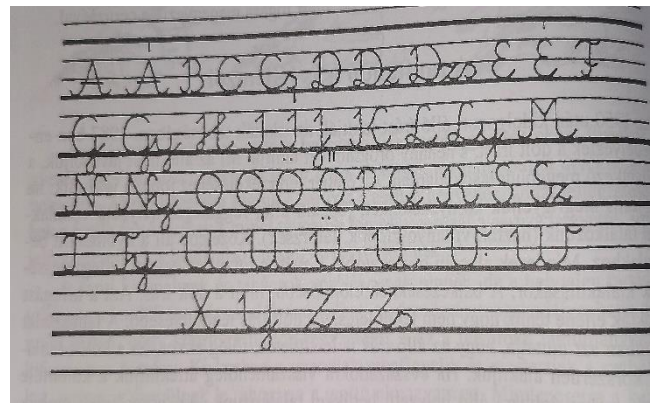 A Á B C Cs D Dz Dzs E É F
G Gy H I Í J K L Ly M
N Ny O Ó Ö Ő P Q R S Sz
T Ty U Ú Ü Ű V W
X Y Z Zs